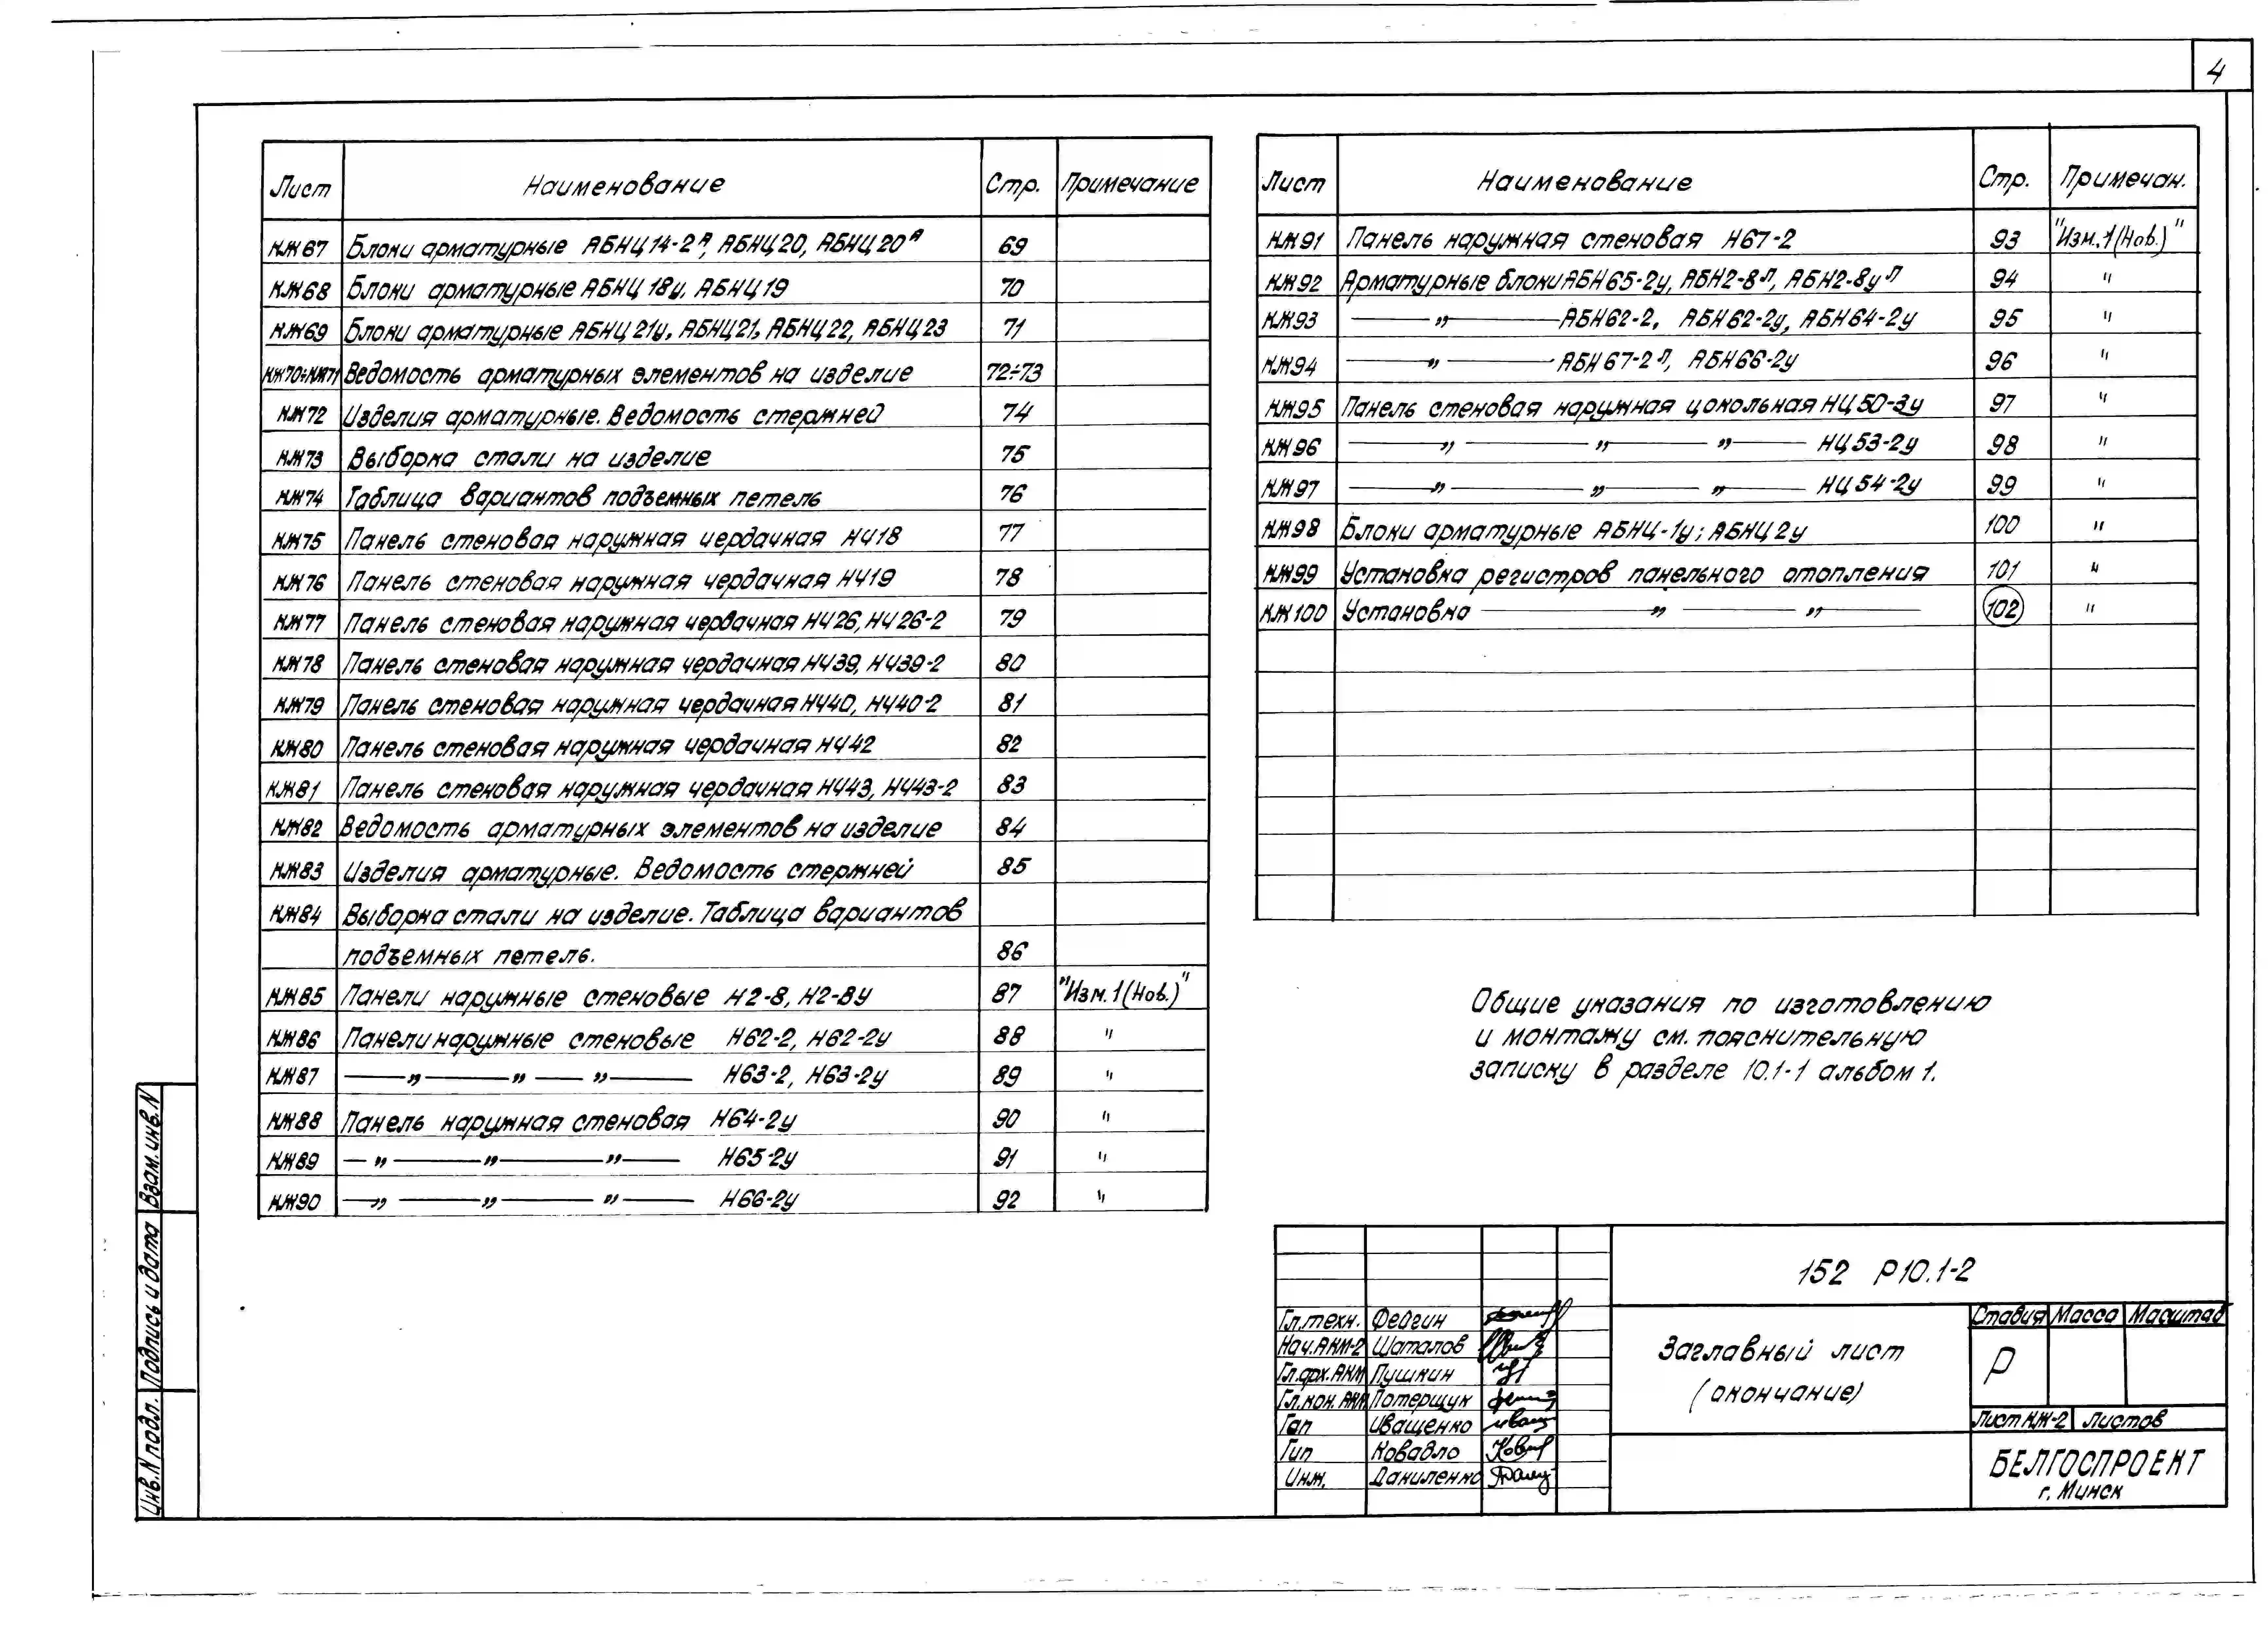 4
Лист Наименование Стр. Примечание
КЖ67 Блоки арматурные АБНЦ14-2А, АБНЦ20, АБНЦ20А 69
КЖ68 Блоки арматурные АБНЦ18у, АБНЦ19 70
КЖ69 Блоки арматурные АБНЦ21у, АБНЦ21, АБНЦ22, АБНЦ23 71
КЖ70÷КЖ71 Ведомость арматурных элементов на изделие 72÷73
КЖ72 Изделия арматурные. Ведомость стержней 74
КЖ73 Выборка стали на изделие 75
КЖ74 Таблица вариантов подъемных петель 76
КЖ75 Панель стеновая наружная чердачная НЧ18 77
КЖ76 Панель стеновая наружная чердачная НЧ19 78
КЖ77 Панель стеновая наружная чердачная НЧ26, НЧ26-2 79
КЖ78 Панель стеновая наружная чердачная НЧ39, НЧ39-2 80
КЖ79 Панель стеновая наружная чердачная НЧ40, НЧ40-2 81
КЖ80 Панель стеновая наружная чердачная НЧ42 82
КЖ81 Панель стеновая наружная чердачная НЧ43, НЧ43-2 83
КЖ82 Ведомость арматурных элементов на изделие 84
КЖ83 Изделия арматурные. Ведомость стержней 85
КЖ84 Выборка стали на изделие. Таблица вариантов
подъемных петель. 86
КЖ85 Панели наружные стеновые Н2-8, Н2-8у 87 "Изм.1(Нов.)"
КЖ86 Панели наружные стеновые Н62-2, Н62-2у 88 "
КЖ87 —„—„—„— Н63-2, Н63-2у 89 "
КЖ88 Панель наружная стеновая Н64-2у 90 "
КЖ89 —„—„—„— Н65-2у 91 "
КЖ90 —„—„—„— Н66-2у 92 "
Лист Наименование Стр. Примечан.
КЖ91 Панель наружная стеновая Н67-2 93 "Изм.1(Нов.)"
КЖ92 Арматурные блоки АБН65-2у, АБН2-8Л, АБН2-8уЛ 94 "
КЖ93 —„— АБН62-2, АБН62-2у, АБН64-2у 95 "
КЖ94 —„— АБН67-2Л, АБН66-2у 96 "
КЖ95 Панель стеновая наружная цокольная НЦ50-3у 97 "
КЖ96 —„—„—„— НЦ53-2у 98 "
КЖ97 —„—„—„— НЦ54-2у 99 "
КЖ98 Блоки арматурные АБНЦ-1у; АБНЦ2у 100 "
КЖ99 Установка регистров панельного отопления 101 "
КЖ100 Установка —„—„— 102 "
Общие указания по изготовлению
и монтажу см. пояснительную
записку в разделе 10.1-1 альбом 1.
Взам.инв.N
Подпись и дата
Инв.N подл.
152 Р10.1-2
Гл.техн. Фейгин
Нач.АКМ-2 Шаталов
Гл.арх.АКМ Пушкин
Гл.кон.АКМ Потерщук
Гап Иващенко
Гип Ковадло
Инж. Даниленко
Заглавный лист
(окончание)
Стадия Масса Масштаб
Р
Лист КЖ-2 Листов
БЕЛГОСПРОЕКТ
г. Минск